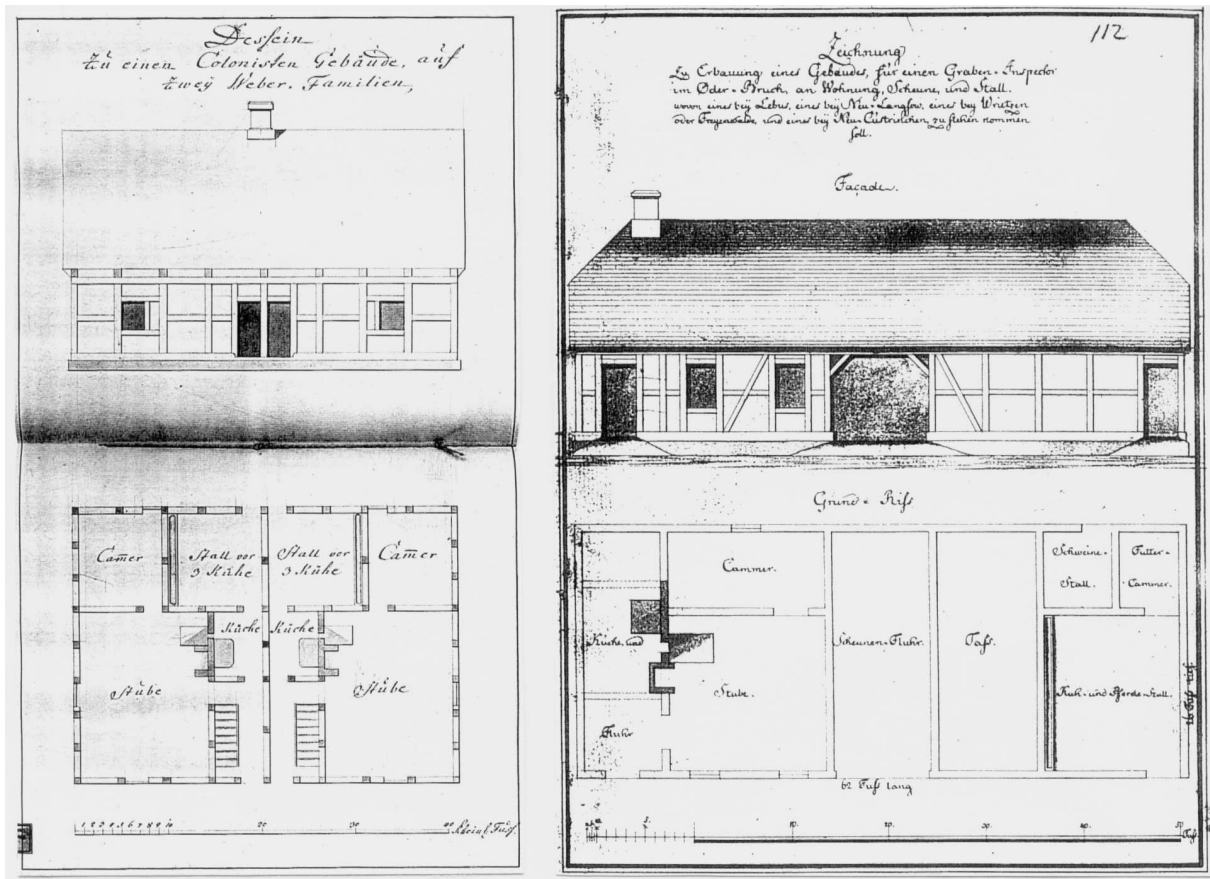 Dessein
Zu einen Colonisten Gebäude, auf
Zweÿ Weber. Familien,
Cam̄er
Stall vor
3 Kühe
Stall vor
3 Kühe
Cam̄er
Küche
Küche
Stube
Stube
1 2 3 4 5 6 7 8 9 10 20 30 40 Rheinl. Fuss.
112
Zeichnung
Zu Erbauung eines Gebäudes, für einen Graben-Inspector
im Oder-Bruch, an Wohnung, Scheune, und Stall.
wovon eines beÿ Lebus, eines beÿ Neu-Langsow, eines beÿ Wrietzen
oder Freyenwalde, und eines beÿ Neu-Cüstrinchen, zu stehen kommen
soll.
Façade.
Grund-Riss
Cammer.
Schweine-
Stall.
Futter-
Cammer.
Küche, und
Stube.
Scheunen-Fluhr.
Tass.
Kuh-und Pferde-Stall.
Fluhr
26 Fuss tief.
62 Fuss lang
5. 10. 20. 30. 40. 50. Fuss.